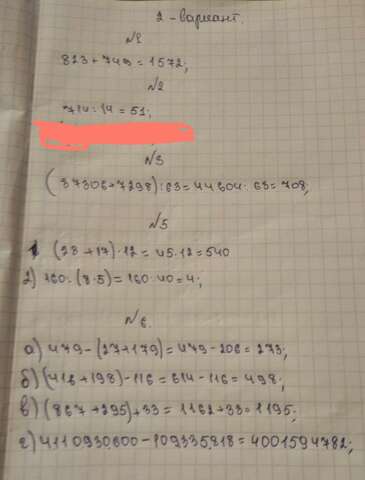 2-вариант.
№1
823 + 749 = 1572;
№2
714 : 14 = 51;
№3
(37306+7298) : 63 = 44604 : 63 = 708;
№5
1 (28 + 17) · 12 = 45 · 12 = 540
2) 160 : (8 · 5) = 160 : 40 = 4;
№6.
а) 479 - (27+179) = 479 - 206 = 273;
б) (416 + 198) - 116 = 614 - 116 = 498;
в) (867 + 295) + 33 = 1162 + 33 = 1195;
г) 4110930600 - 109335818 = 4001594782;